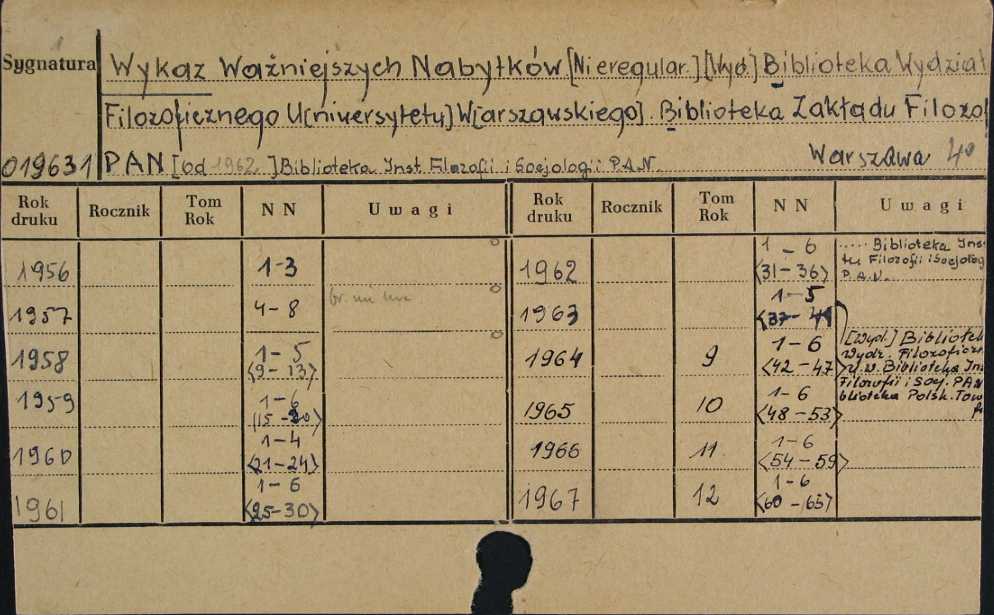 Sygnatura Wykaz Ważniejszych Nabytków [Nieregular.] [Wyd.] Biblioteka Wydział
Filozoficznego U[niwersytetu] W[arszawskiego]. Biblioteka Zakładu Filozof
019631 PAN [od 1962 ] Biblioteka Inst Filozofii i Socjologii PAN. Warszawa 4°
Rok druku Rocznik Tom Rok NN Uwagi Rok druku Rocznik Tom Rok NN Uwagi
1956 1-3 1962 1-6 <31-36> ..... Biblioteka Ins
tu Filozofii i Socjolog
P.A.N.
1957 4-8 1963 1-5
1958 1-5 <9-13> 1964 9 1-6 <42-47> [Wyd.] Bibliotek
Wydz. Filozoficzn
U.W. Biblioteka Ins
Filozofii i Soc. PAN
blioteka Polsk. Tow
1959 1-6 1965 10 1-6 <48-53>
1960 1-4 <21-24> 1966 11 1-6 <54-59>
1961 1-6 <25-30> 1967 12 1-6 <60-65>